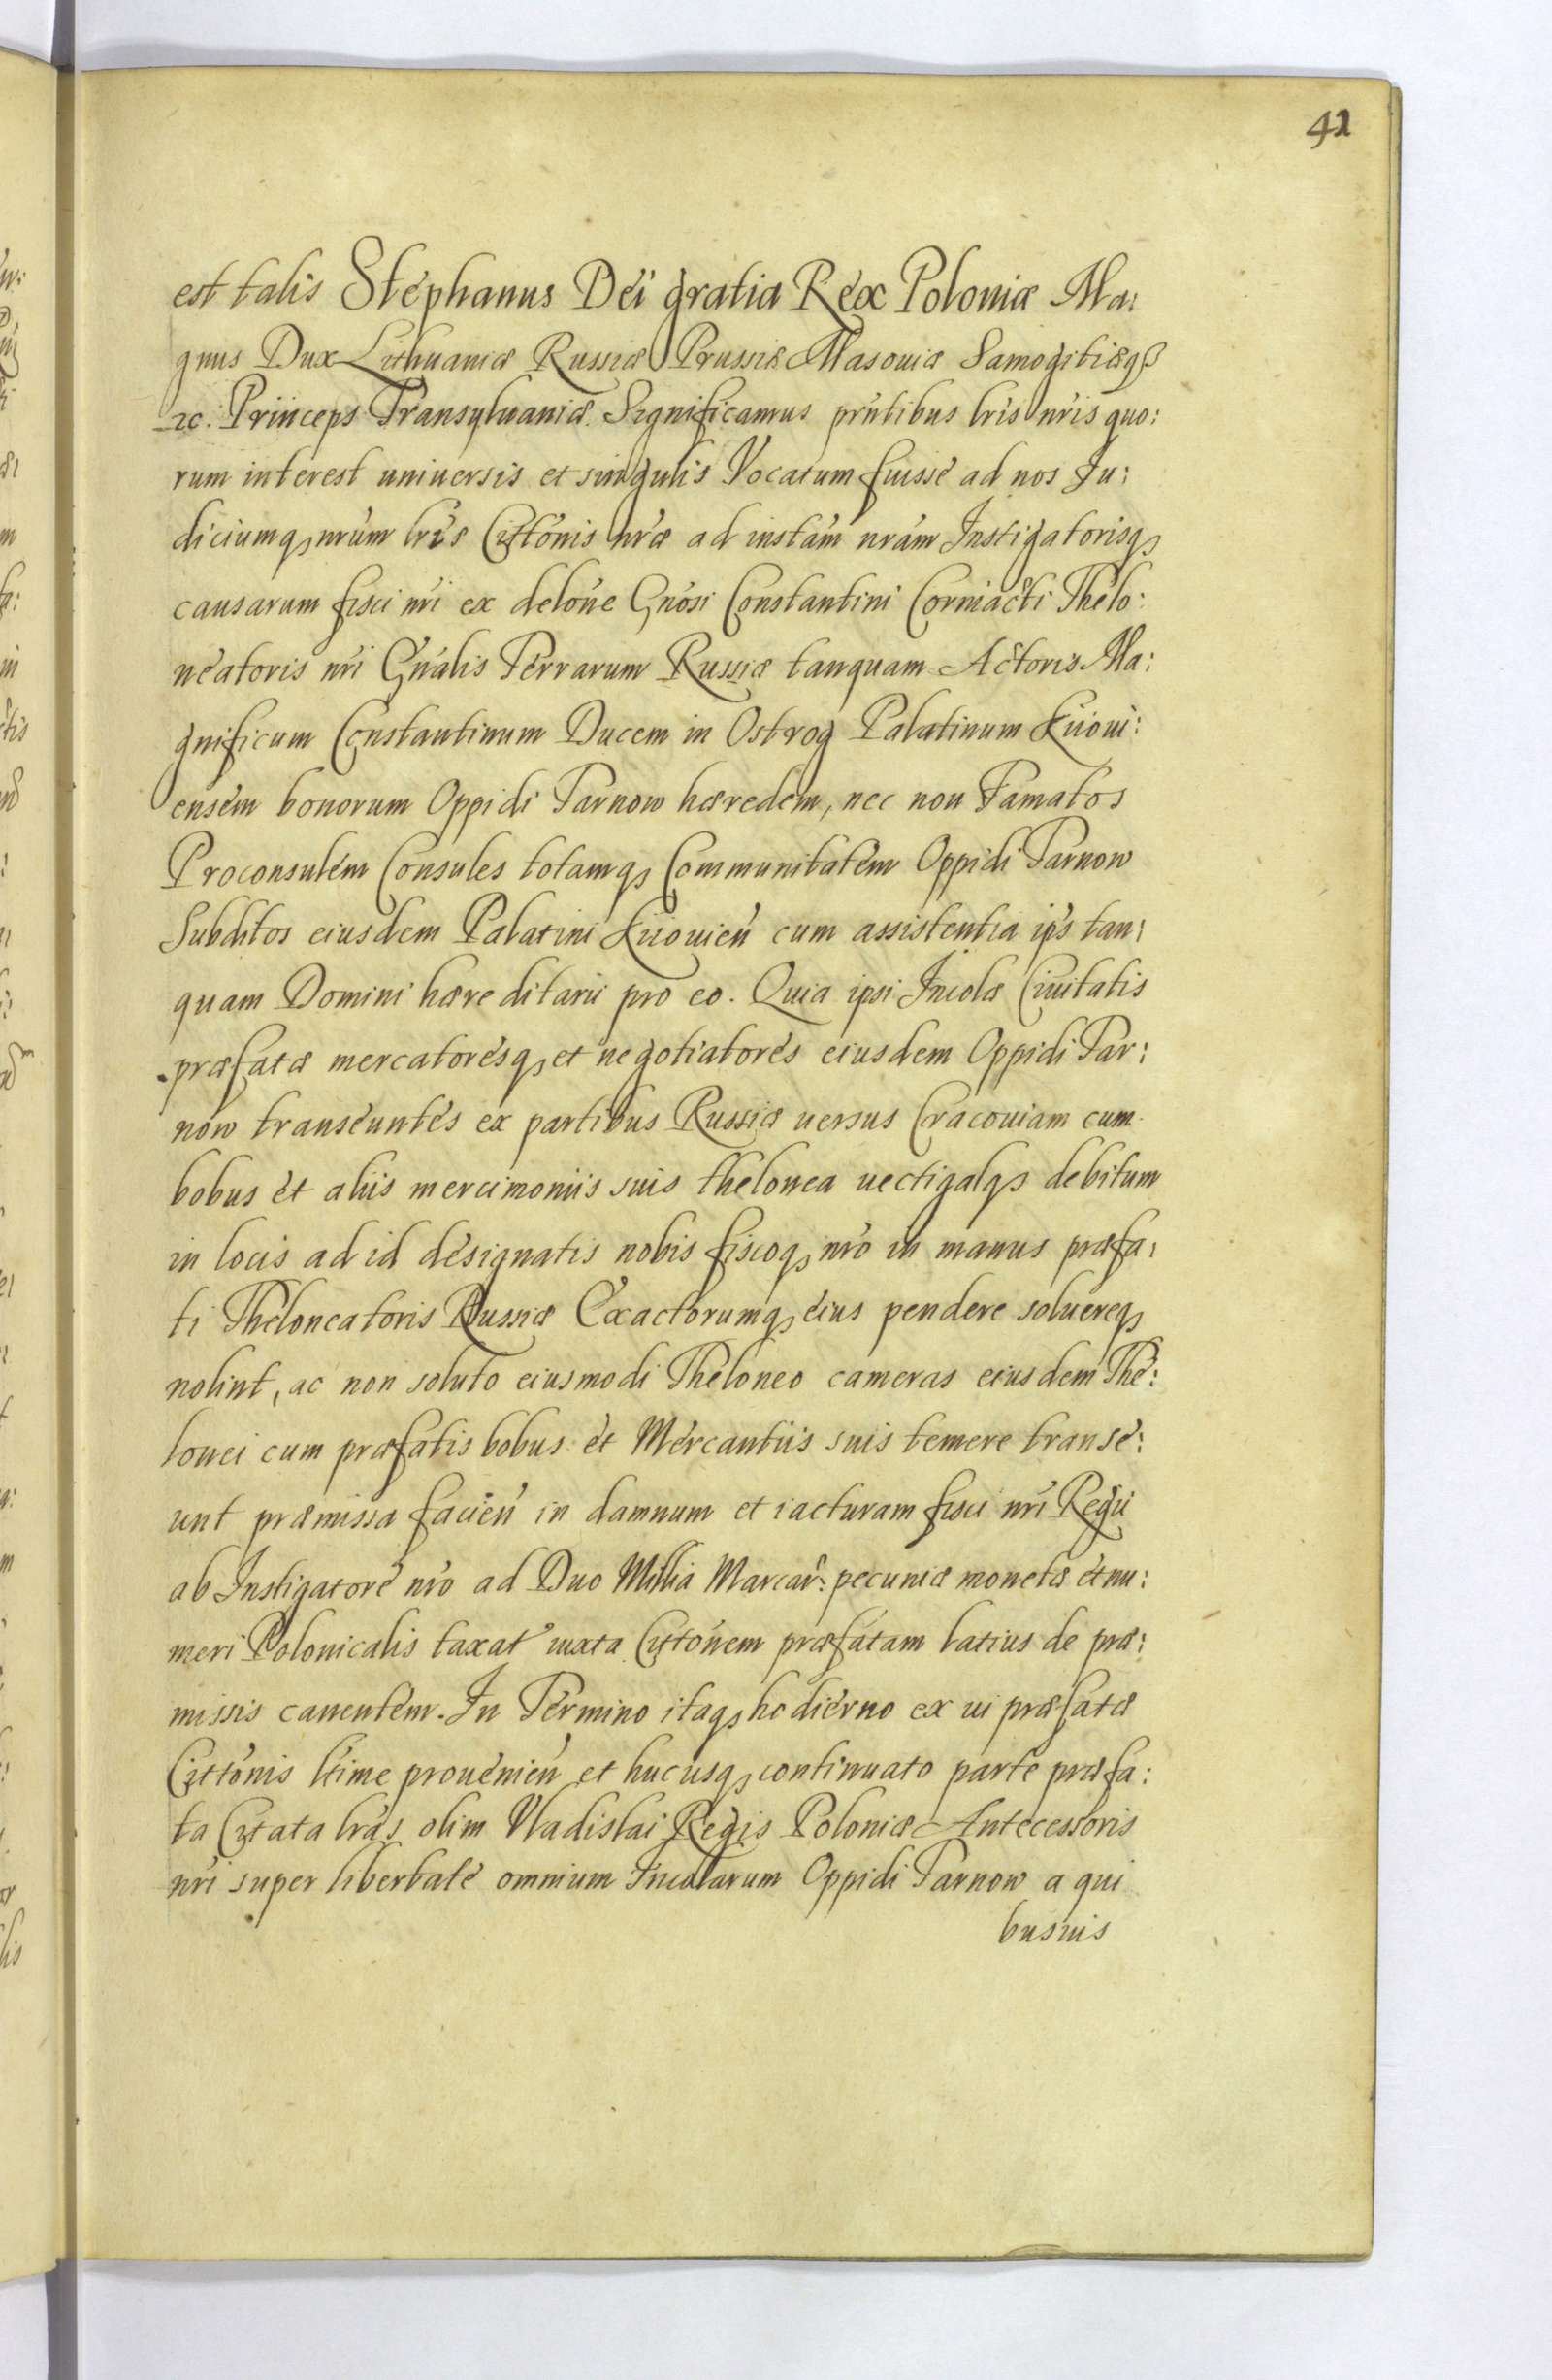 41
est talis Stephanus Dei gratia Rex Poloniæ Ma:
gnus Dux Lithuaniæ Russiæ Prussiæ Masouiæ Samogitiæqꝫ
ꝛc. Princeps Transyluaniæ. Significamus pn̄tibus lr̄is nr̄is quo:
rum interest uniuersis et singulis Vocatum fuisse ad nos Iu:
diciumqꝫ nr̄um lr̄is Citt̄onis nr̄æ ad instām nr̄am Instigatorisqꝫ
causarum fisci nr̄i ex delōne Gn̄osi Constantini Corniacti Thelo:
neatoris nr̄i Gn̄alis Terrarum Russiæ tanquam Actoris Ma:
gnificum Constantinum Ducem in Ostrog Palatinum Kiioui:
ensem bonorum Oppidi Tarnow hæredem, nec non Famatos
Proconsulem Consules totamqꝫ Communitatem Oppidi Tarnow
Subditos eiusdem Palatini Kiiouien̄ cum assistentia ip̄s tan:
quam Domini hæreditarii pro eo. Quia ipsi Incolæ Ciuitatis
præfatæ mercatoresqꝫ et negotiatores eiusdem Oppidi Tar:
now transeuntes ex partibus Russiæ uersus Cracouiam cum
bobus et aliis mercimoniis suis thelonea uectigalqꝫ debitum
in locis ad id designatis nobis fiscoqꝫ nr̄o in manus præfa:
ti Theloneatoris Russiæ Exactorumqꝫ eius pendere soluereqꝫ
nolint, ac non soluto eiusmodi Theloneo cameras eiusdem The:
lonei cum præfatis bobus et Mercantiis suis temere transe:
unt præmissa facien̄ in damnum et iacturam fisci nr̄i Regii
ab Instigatore nr̄o ad Duo Millia Marcar̄: pecuniæ monetæ et nu:
meri Polonicalis taxat' iuxta Citt̄onem præfatam latius de præ:
missis canentem. In Termino itaqꝫ hodierno ex ui præfatæ
Citt̄onis lt̄ime prouenien̄ et hucusqꝫ continuato parte præfa:
ta Citata lr̄as olim Vladislai Regis Poloniæ Antecessoris
nr̄i super libertate omnium Incolarum Oppidi Tarnow a qui
busuis